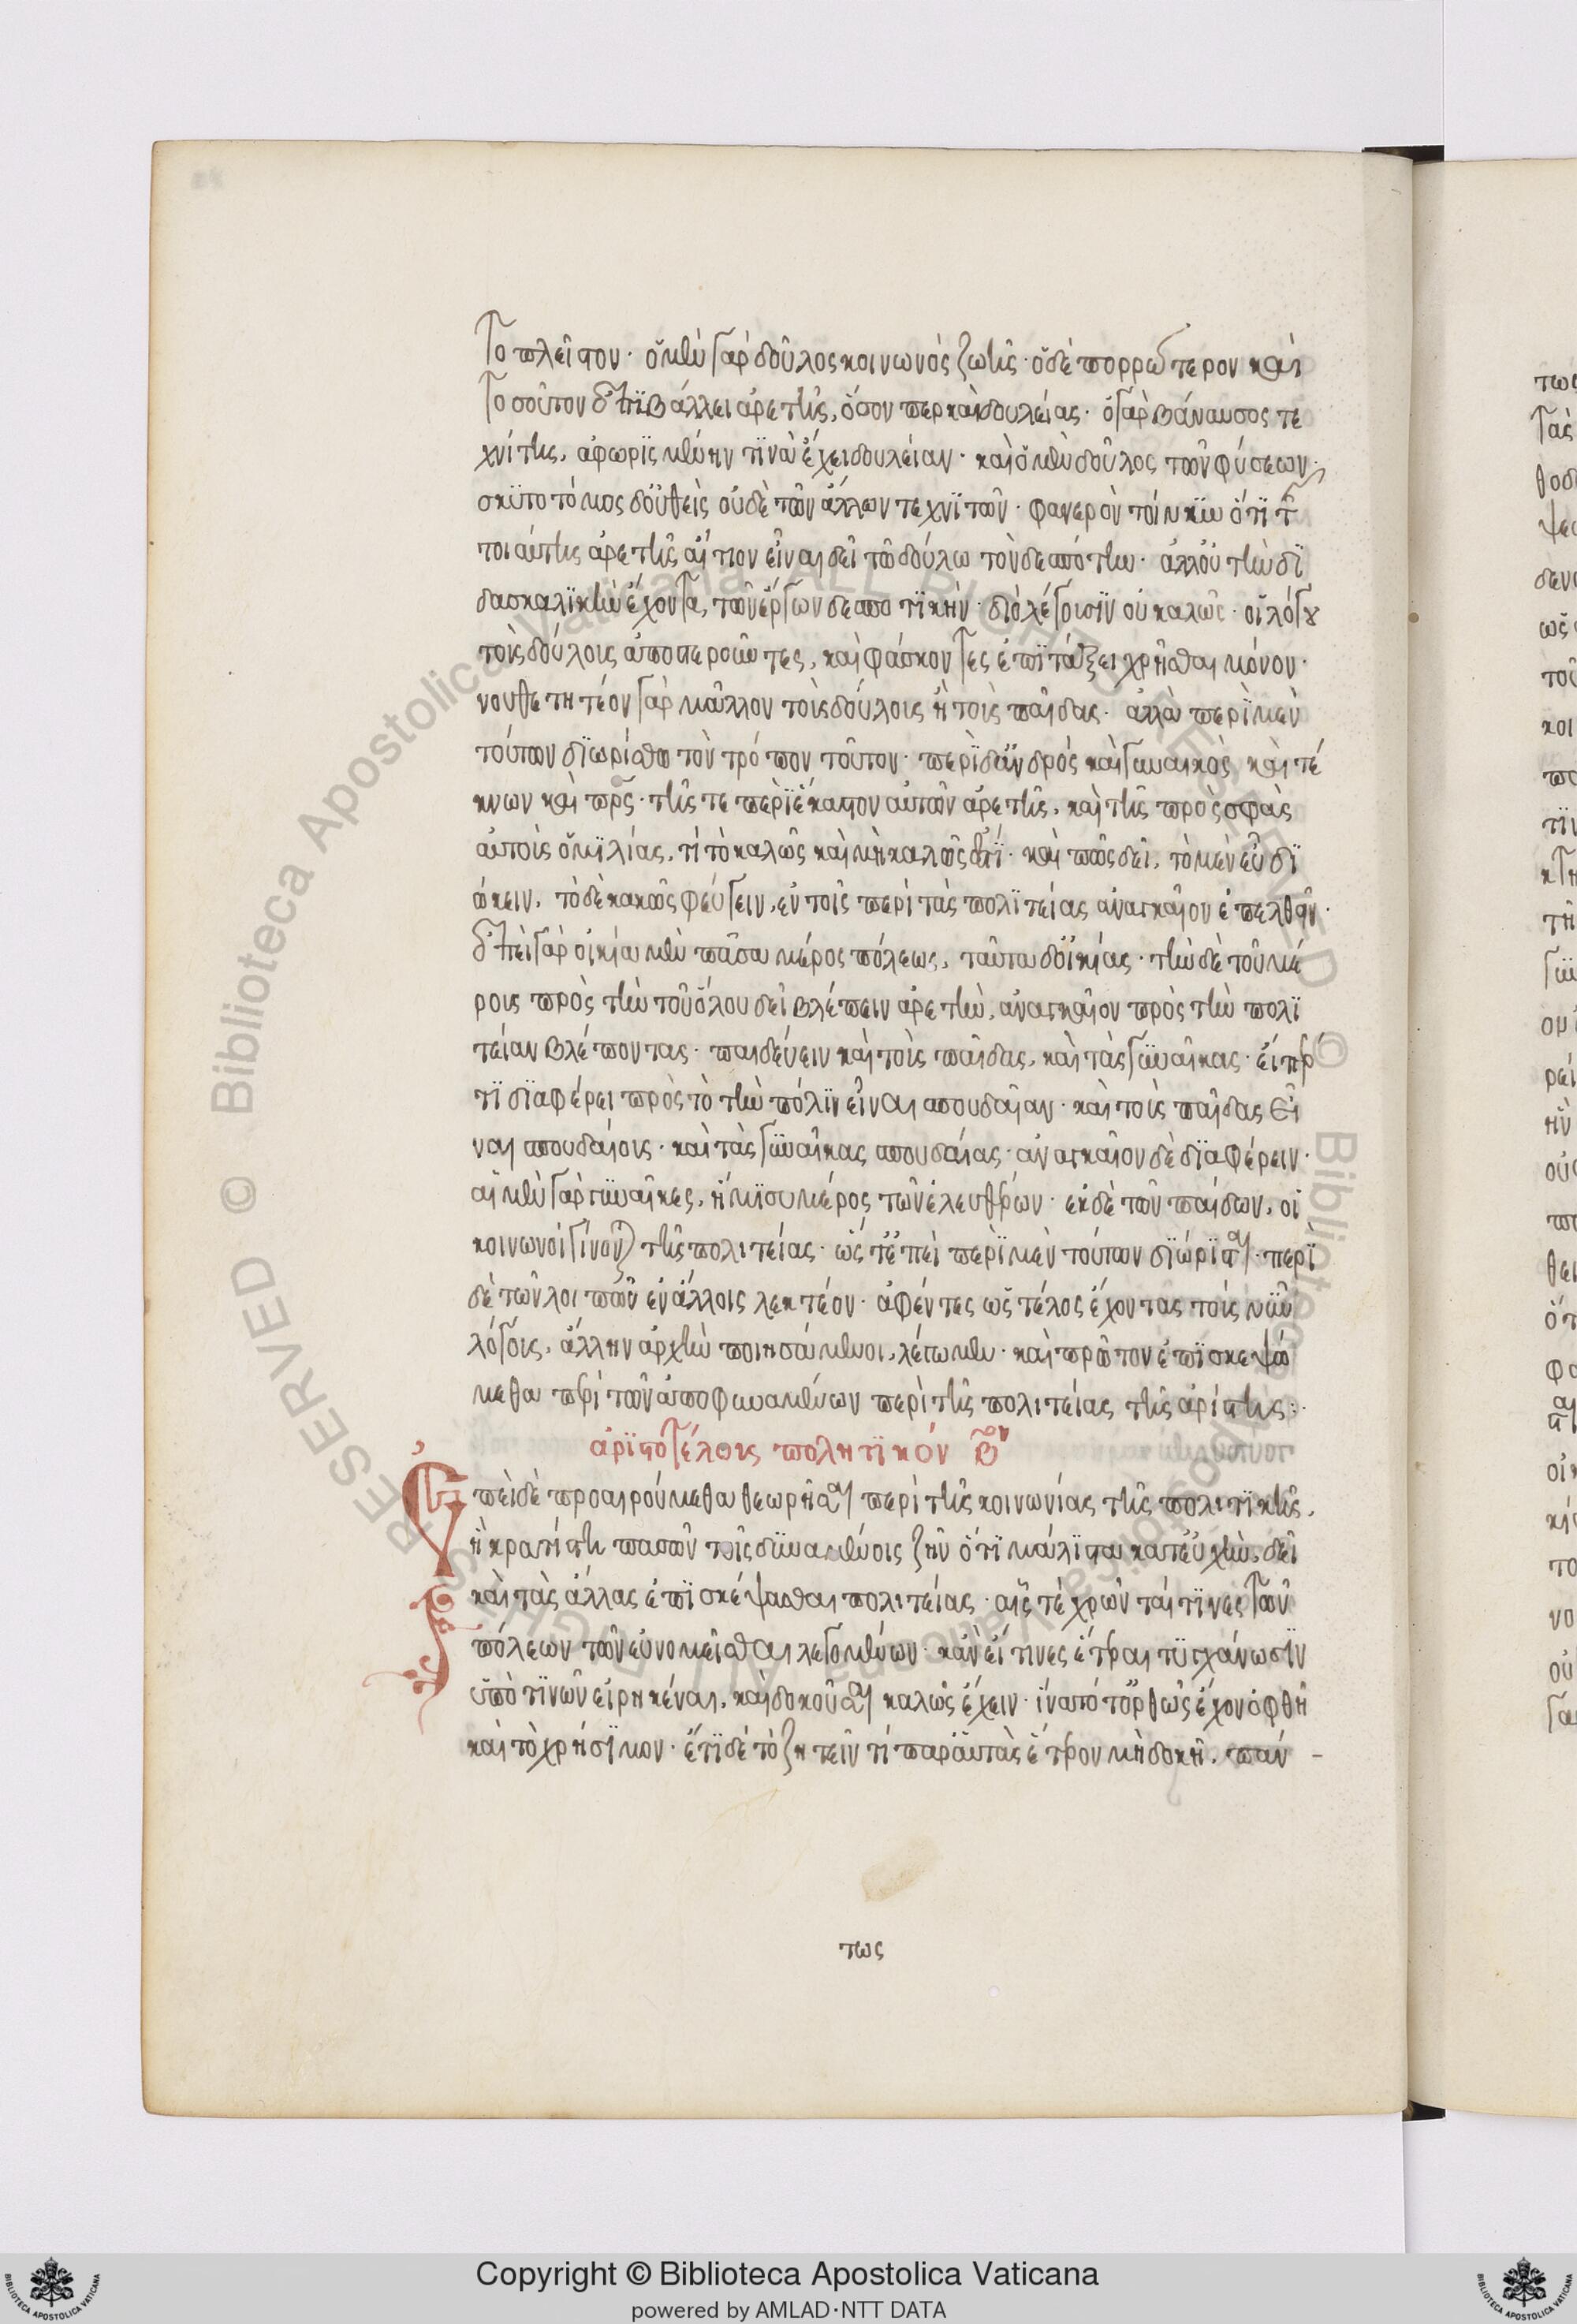 το πλεῖστον· ὁ μὲν γὰρ δοῦλος κοινωνὸς ζωῆς· ὁ δὲ πορρώτερον καὶ
τοσοῦτον ἐπιβάλλει ἀρετῆς, ὅσον περ καὶ δουλείας· ὁ γὰρ βάναυσος τε
χνίτης, ἀφωρισμένην τινὰ ἔχει δουλείαν· καὶ ὁ μὲν δοῦλος τῶν φύσεων·
σκυτοτόμος δ' οὐθεὶς οὐδὲ τῶν ἄλλων τεχνιτῶν· φανερὸν τοίνυν ὅτι τῆς
τοιαύτης ἀρετῆς αἴτιον εἶναι δεῖ τῶ δούλω τὸν δεσπότην· ἀλλ' οὐ τὴν δι
δασκαλικὴν ἔχοντα, τῶν ἔργων δεσποτικήν· διὸ λέγουσιν οὐ καλῶς· οἱ λόγου
τοὺς δούλους ἀποστεροῦντες, καὶ φάσκοντες ἐπιτάξει χρῆσθαι μόνον·
νουθετητέον γὰρ μᾶλλον τοὺς δούλους ἢ τοὺς παῖδας· ἀλλὰ περὶ μὲν
τούτων διωρίσθω τὸν τρόπον τοῦτον· περὶ δ' ἀνδρὸς καὶ γυναικὸς καὶ τέ
κνων καὶ πρς· τῆς τε περὶ ἕκαστον αὐτῶν ἀρετῆς, καὶ τῆς πρὸς σφᾶς
αὐτοὺς ὁμιλίας, τί τὸ καλῶς καὶ μὴ καλῶς ἐστί· καὶ πῶς δεῖ, τὸ μὲν εὖ δι
ώκειν, τὸ δὲ κακῶς φεύγειν, ἐν τοῖς περὶ τὰς πολιτείας ἀναγκαῖον ἐπελθεῖν·
ἐπεὶ γὰρ οἰκία μὲν πᾶσα μέρος πόλεως, ταῦτα δ' οἰκίας· τὴν δὲ τοῦ μέ
ρους πρὸς τὴν τοῦ ὅλου δεῖ βλέπειν ἀρετὴν, ἀναγκαῖον πρὸς τὴν πολι
τείαν βλέποντας· παιδεύειν καὶ τοὺς παῖδας, καὶ τὰς γυναῖκας· εἴπερ
τι διαφέρει πρὸς τὸ τὴν πόλιν εἶναι σπουδαίαν· καὶ τοὺς παῖδας εἶ
ναι σπουδαίους· καὶ τὰς γυναῖκας σπουδαίας· ἀναγκαῖον δὲ διαφέρειν·
αἱ μὲν γὰρ γυναῖκες, ἥμισυ μέρος τῶν ἐλευθέρων· ἐκ δὲ τῶν παίδων, οἱ
κοινωνοὶ γίνονται τῆς πολιτείας· ὥστ' ἐπεὶ περὶ μὲν τούτων διώρισται· περὶ
δὲ τῶν λοιπῶν ἐν ἄλλοις λεκτέον· ἀφέντες ὡς τέλος ἔχοντας τοὺς νῦν
λόγους, ἄλλην ἀρχὴν ποιησάμενοι, λέγωμεν· καὶ πρῶτον ἐπισκεψώ
μεθα περὶ τῶν ἀποφηναμένων περὶ τῆς πολιτείας τῆς ἀρίστης:·
ἀριστοτέλους πολητικόν β̅ον
Ἐπεὶ δὲ προαιρούμεθα θεωρῆσαι περὶ τῆς κοινωνίας τῆς πολιτικῆς,
ἣ κρατίστη πασῶν τοῖς δυναμένοις ζῆν ὅτι μάλιστα κατ' εὐχὴν, δεῖ
καὶ τὰς ἄλλας ἐπισκέψασθαι πολιτείας· αἷς τε χρῶνταί τινες τῶν
πόλεων τῶν εὐνομεῖσθαι λεγομένων· κἂν εἴ τινες ἕτεραι τυγχάνωσιν
ὑπὸ τινῶν εἰρημέναι, καὶ δοκοῦσαι καλῶς ἔχειν· ἵνα τό τ' ὀρθῶς ἔχον ὀφθῆ
καὶ τὸ χρήσιμον· ἔτι δὲ τὸ ζητεῖν τί παρ' αὐτὰς ἕτερον μὴ δοκῆ, πάν-
τως